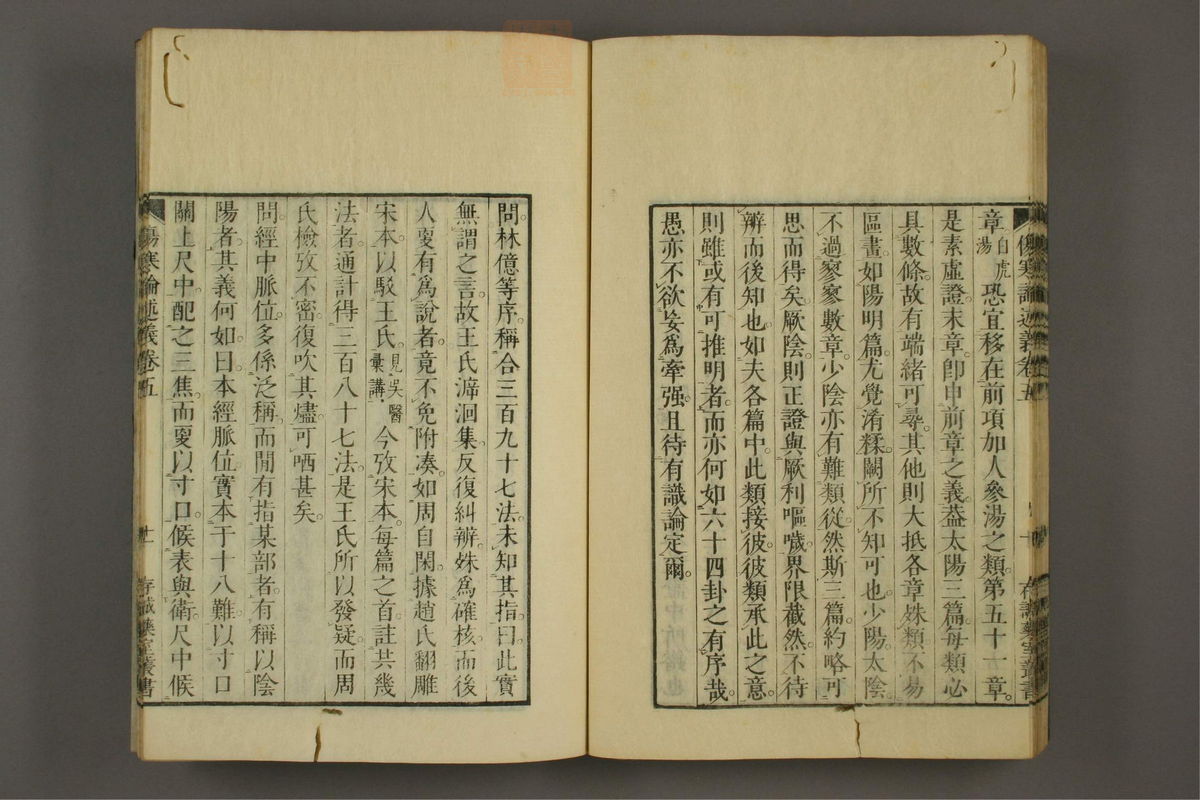 傷寒論述義卷五
十
存誠藥室叢書
章白虎湯恐宜移在前項加人參湯之類。第五十一章。
是素虛證。末章卽申前章之義。葢太陽三篇。每類必
具數條。故有端緒可尋。其他則大抵各章殊類。不易
區畫。如陽明篇。尤覺淆糅。闕所不知可也。少陽。太陰。
不過寥寥數章。少陰亦有難類從。然斯三篇。約略可
思而得矣。厥陰。則正證與厥利嘔噦。界限截然。不待
辨而後知也。如夫各篇中。此類接彼。彼類承此之意。
則雖或有可推明者。而亦何如六十四卦之有序哉。
愚亦不欲妄爲牽强。且待有識論定爾。
問。林億等序。稱合三百九十七法。未知其指。曰。此實
無謂之言。故王氏溯洄集。反復糾辨。姝爲確核。而後
人更有爲說者。竟不免附湊。如周自閑。據趙氏翻雕
宋本。以駁王氏。見吳醫彙講。今攷宋本。每篇之首。註共幾
法者。通計得三百八十七法。是王氏所以發疑。而周
氏檢攷不密。復吹其燼。可哂甚矣。
問。經中脈位。多係泛稱。而閒有指某部者。有稱以陰
陽者。其義何如。曰。本經脈位。實本于十八難。以寸口
關上尺中。配之三焦。而更以寸口。候表與衛。尺中候
傷寒論述義卷五
十一
存誠藥室叢書